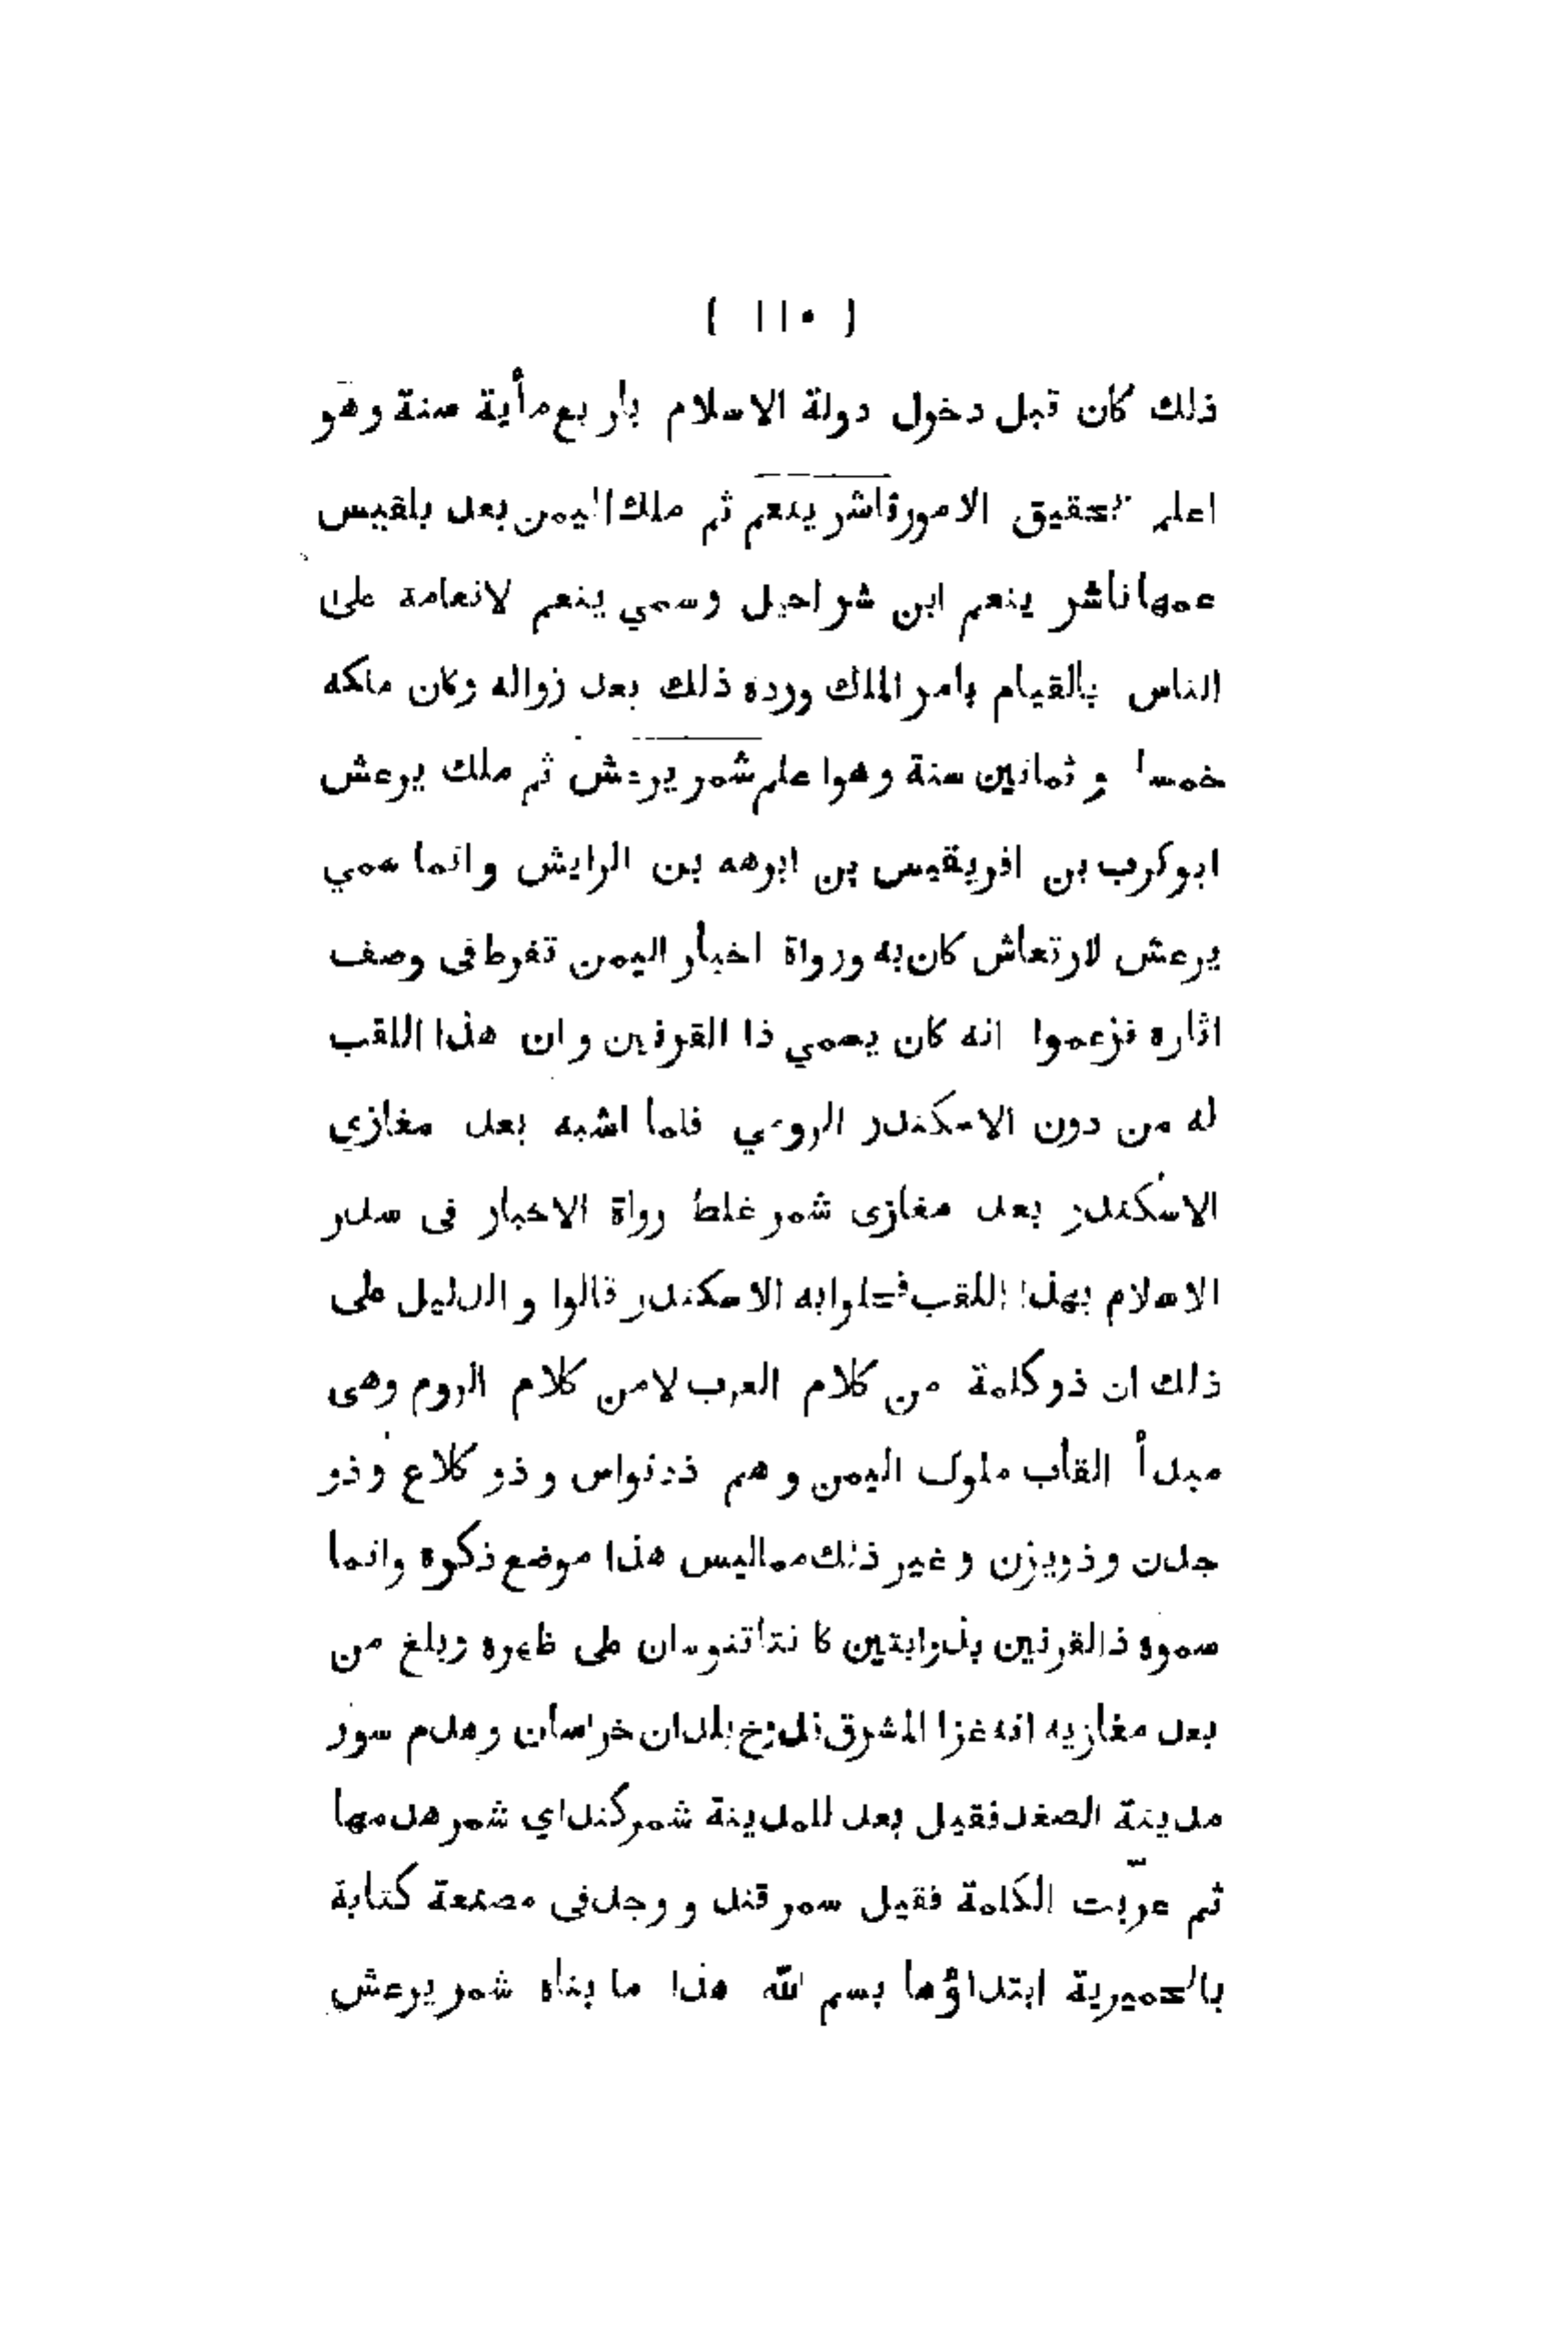 ( ١١٠ )
ذلك كان قبل دخول دولة الاسلام باربع مأية سنة وهو
اعلم بحقيق الامور ناشر ينعم ثم ملك اليمن بعد بلقيس
عمها ناشر ينعم ابن شراحيل وسمي ينعم لانعامه على
الناس بالقيام بامر الملك ورده ذلك بعد زواله وكان ملكه
خمسا و ثمانين سنة وهو اعلم شمر يرعش ثم ملك يرعش
ابو كرب بن افريقيس بن ابرهه بن الرايش وانما سمي
يرعش لارتعاش كان به ورواة اخبار اليمن تفرط فى وصف
اثاره فزعموا انه كان يسمي ذا القرنين وان هذا اللقب
له من دون الاسكندر الرومي فلما اشبه بعد مغازي
الاسكندر بعد مغازى شمر غلط رواة الاخبار فى سدر
الاسلام بهذا اللقب فحلوا به الاسكندر قالوا و الدليل على
ذلك ان ذو كلمة من كلام العرب لا من كلام الروم وهى
مبدأ القاب ملوك اليمن و هم ذونواس و ذو كلاع و ذو
جدن و ذويزن و غير ذلك مما ليس هذا موضع ذكره وانما
سموه ذالقرنين بذوابتين كا نتا تنوسان على ظهره وبلغ من
بعد مغازيه انه غزا المشرق فدوخ بلدان خراسان وهدم سور
مدينة الصغد فقيل بعد للمدينة شمركند اي شمر هدمها
ثم عرّبت الكلمة فقيل سمر قند و وجد فى مصنعة كتابة
بالحميرية ابتداؤها بسم الله هذا ما بناه شمر يرعش